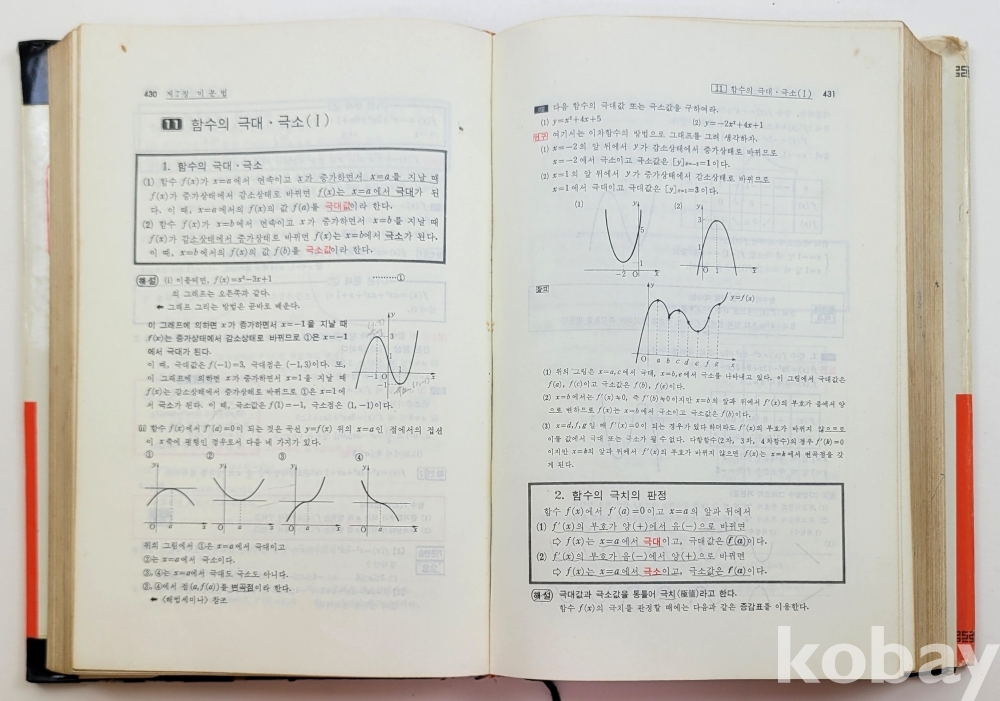 430 제7장 미분법
11 함수의 극대·극소(Ⅰ)
1. 함수의 극대·극소
(1) 함수 f(x)가 x=a에서 연속이고 x가 증가하면서 x=a를 지날 때
f(x)가 증가상태에서 감소상태로 바뀌면 f(x)는 x=a에서 극대가 된
다. 이 때, x=a에서의 f(x)의 값 f(a)를 극대값이라 한다.
(2) 함수 f(x)가 x=b에서 연속이고 x가 증가하면서 x=b를 지날 때
f(x)가 감소상태에서 증가상태로 바뀌면 f(x)는 x=b에서 극소가 된다.
이 때, x=b에서의 f(x)의 값 f(b)를 극소값이라 한다.
해설 (i) 이를테면, f(x)=x³-3x+1 ………①
의 그래프는 오른쪽과 같다.
← 그래프 그리는 방법은 곧바로 배운다.
이 그래프에 의하면 x가 증가하면서 x=-1을 지날 때
f(x)는 증가상태에서 감소상태로 바뀌므로 ①은 x=-1
에서 극대가 된다.
이 때, 극대값은 f(-1)=3, 극대점은 (-1, 3)이다. 또,
이 그래프에 의하면 x가 증가하면서 x=1을 지날 때
f(x)는 감소상태에서 증가상태로 바뀌므로 ①은 x=1에
서 극소가 된다. 이 때, 극소값은 f(1)=-1, 극소점은 (1, -1)이다.
y
3
1
-1 O
-1
1
x
(ii) 함수 f(x)에서 f'(a)=0이 되는 것은 곡선 y=f(x) 위의 x=a인 점에서의 접선
이 x축에 평행인 경우로서 다음 네 가지가 있다.
① ② ③ ④
y y y y
O a x O a x O a x O a x
위의 그림에서 ①은 x=a에서 극대이고
②는 x=a에서 극소이다.
③, ④는 x=a에서 극대도 극소도 아니다.
③, ④에서 점(a, f(a))를 변곡점이라 한다.
← 〈해법세미나〉 참조
11 함수의 극대·극소(Ⅰ) 431
다음 함수의 극대값 또는 극소값을 구하여라.
(1) y=x²+4x+5 (2) y=-2x²+4x+1
연구 여기서는 이차함수의 방법으로 그래프를 그려 생각하자.
(1) x=-2의 앞 뒤에서 y가 감소상태에서 증가상태로 바뀌므로
x=-2에서 극소이고 극소값은 [y]x=-2=1이다.
(2) x=1의 앞 뒤에서 y가 증가상태에서 감소상태로 바뀌므로
x=1에서 극대이고 극대값은 [y]x=1=3이다.
(1) y (2) y
5 3
1 1
-2 O x O 1 x
참고
y y=f(x)
O a b c d e f g x
(1) 위의 그림은 x=a, c에서 극대, x=b, e에서 극소를 나타내고 있다. 이 그림에서 극대값은
f(a), f(c)이고 극소값은 f(b), f(e)이다.
(2) x=b에서는 f'(x)≒0, 즉 f'(b)≒0이지만 x=b의 앞과 뒤에서 f'(x)의 부호가 음에서 양
으로 변하므로 f(x)는 x=b에서 극소이고 극소값은 f(b)이다.
(3) x=d, f, g일 때 f'(x)=0이 되는 경우가 있다 하더라도 f'(x)의 부호가 바뀌지 않으므로
이들 값에서 극대 또는 극소가 될 수 없다. 다항함수(2차, 3차, 4차함수)의 경우 f'(k)=0
이지만 x=k의 앞과 뒤에서 f'(x)의 부호가 바뀌지 않으면 f(x)는 x=k에서 변곡점을 갖
게 된다.
2. 함수의 극치의 판정
함수 f(x)에서 f'(a)=0이고 x=a의 앞과 뒤에서
(1) f'(x)의 부호가 양(+)에서 음(-)으로 바뀌면
⇨ f(x)는 x=a에서 극대이고, 극대값은 f(a)이다.
(2) f'(x)의 부호가 음(-)에서 양(+)으로 바뀌면
⇨ f(x)는 x=a에서 극소이고, 극소값은 f(a)이다.
해설 극대값과 극소값을 통틀어 극치(極値)라고 한다.
함수 f(x)의 극치를 판정할 때에는 다음과 같은 증감표를 이용한다.
kobay